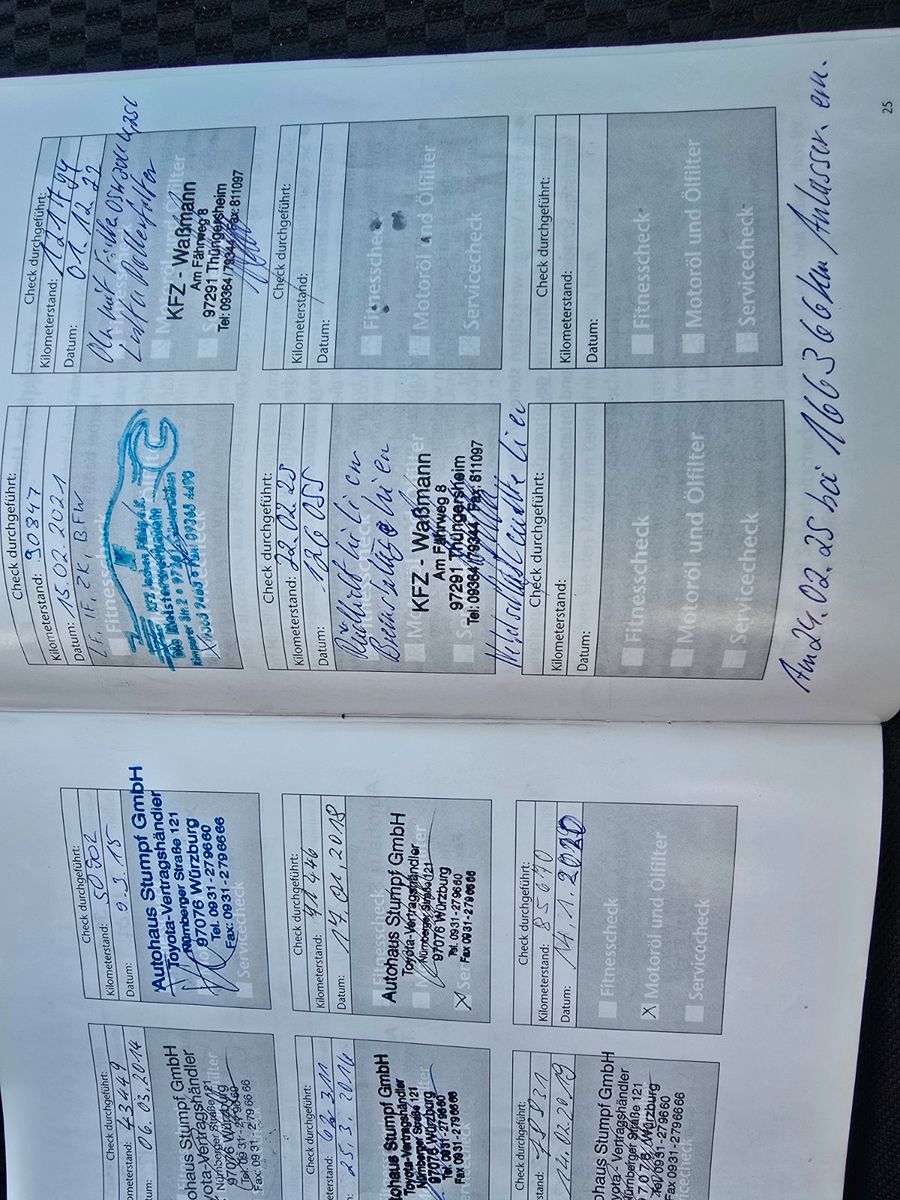 Check durchgeführt:
Kilometerstand: 43449
Datum: 06.03.2014
Autohaus Stumpf GmbH
Toyota-Vertragshändler
Nürnberger Straße 121
97076 Würzburg
Tel: 0931-279660
Fax: 0931-2796666
Check durchgeführt:
Kilometerstand: 50902
Datum: 9.3.15
Autohaus Stumpf GmbH
Toyota-Vertragshändler
Nürnberger Straße 121
97076 Würzburg
Tel: 0931-279660
Fax: 0931-2796666
Servicecheck
Check durchgeführt:
Autohaus Stumpf GmbH
Toyota-Vertragshändler
Nürnberger Straße 121
97076 Würzburg
Tel. 0931-279660
Fax 0931-2796666
Check durchgeführt:
Kilometerstand: 71446
Datum: 17.01.2018
Fitnesscheck
Autohaus Stumpf GmbH
Toyota-Vertragshändler
Nürnberger Straße 121
97076 Würzburg
Tel. 0931-279660
Fax 0931-2796666
Check durchgeführt:
14.02.2019
Autohaus Stumpf GmbH
Toyota-Vertragshändler
Nürnberger Straße 121
97076 Würzburg
Tel. 0931/279660
Fax: 0931-2796666
Check durchgeführt:
Kilometerstand: 85670
Datum: 14.1.2020
Fitnesscheck
X Motoröl und Ölfilter
Servicecheck
Check durchgeführt:
Kilometerstand: 90847
Datum: 15.02.2021
Fitnesscheck
Check durchgeführt:
Kilometerstand: 121794
Datum: 01.12.22
KFZ - Waßmann
Am Fährweg 8
97291 Thüngersheim
Tel: 09364/79344 Fax: 811097
Check durchgeführt:
Kilometerstand: 22.02.23
Datum: 126055
KFZ - Waßmann
Am Fährweg 8
97291 Thüngersheim
Tel: 09364/79344 Fax: 811097
Check durchgeführt:
Kilometerstand:
Datum:
Fitnesscheck
Motoröl und Ölfilter
Servicecheck
Check durchgeführt:
Kilometerstand:
Datum:
Fitnesscheck
Motoröl und Ölfilter
Servicecheck
Check durchgeführt:
Kilometerstand:
Datum:
Fitnesscheck
Motoröl und Ölfilter
Servicecheck
Am 24.02.25 bei 166366 km Anlasser ern.
25